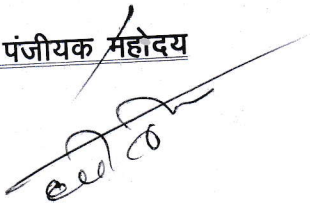 पंजीयक महोदय